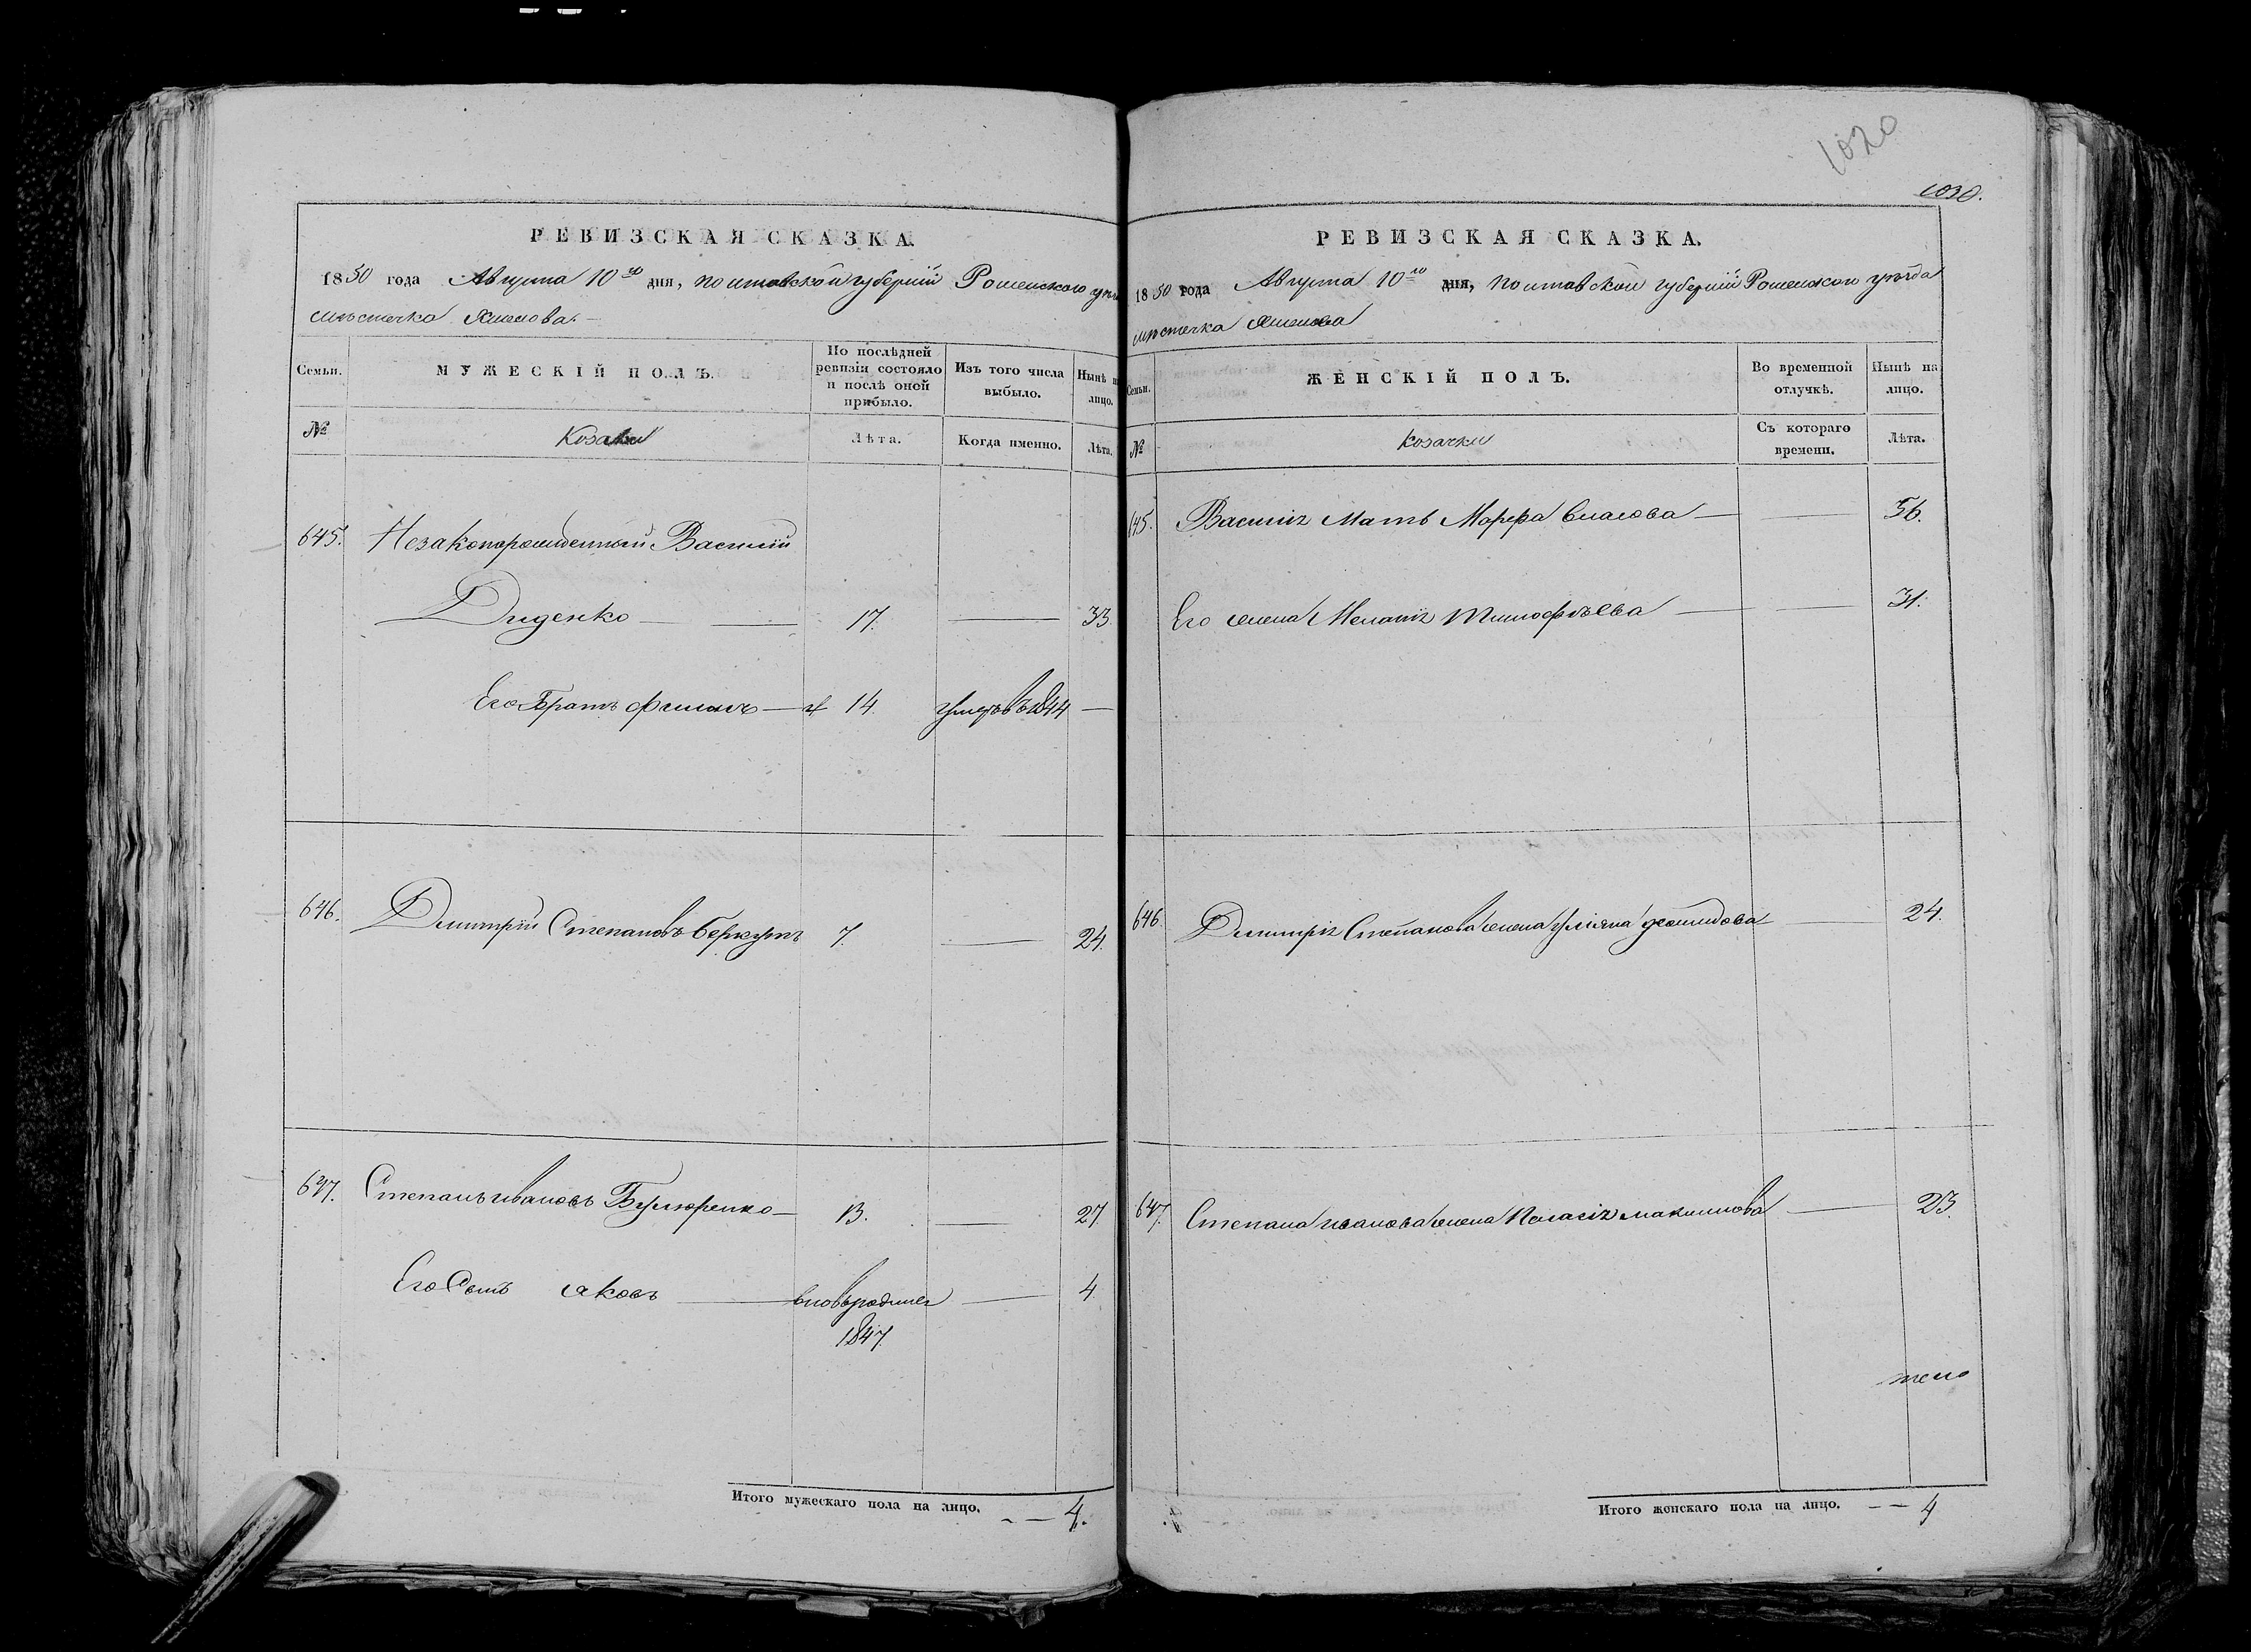 РЕВИЗСКАЯ СКАЗКА.
1850 года Августа 10го дня, Полтавской губерніи Роменского уѣз
мѣстечка
Семьи.
МУЖЕСКІЙ ПОЛЪ.
По послѣдней ревизіи состояло и послѣ оной прибыло.
Изъ того числа выбыло.
Нынѣ на лицо.
№
Козаки
Лѣта.
Когда именно.
Лѣта.
645. Незаконорожденный Василій
Диденко — — 17. — 33.
Его Братъ Филипъ — 14. умеръ въ 1844 —
646. Димитрій Степановъ Беркутъ 7. — 24.
647. Степанъ Ивановъ — 13. — 27
Его Сынъ Яковъ — вновьродился — 4
1847
Итого мужескаго пола на лицо. — — 4.
1020
1020.
РЕВИЗСКАЯ СКАЗКА.
1850 года Августа 10го дня, Полтавской губерніи Роменского уѣзда
мѣстечка
Семьи.
ЖЕНСКІЙ ПОЛЪ.
Во временной отлучкѣ.
Нынѣ на лицо.
№
Козачки
Съ котораго времени.
Лѣта.
645. Василія Мать Марфа Власова — — 56.
Его жена Меланія Тимофѣева — — 31.
646. Димитрія Степанова жена Уліяна — 24.
647. Степана Иванова жена Пелагія Максимова — 23.
Итого женскаго пола на лицо. — — 4